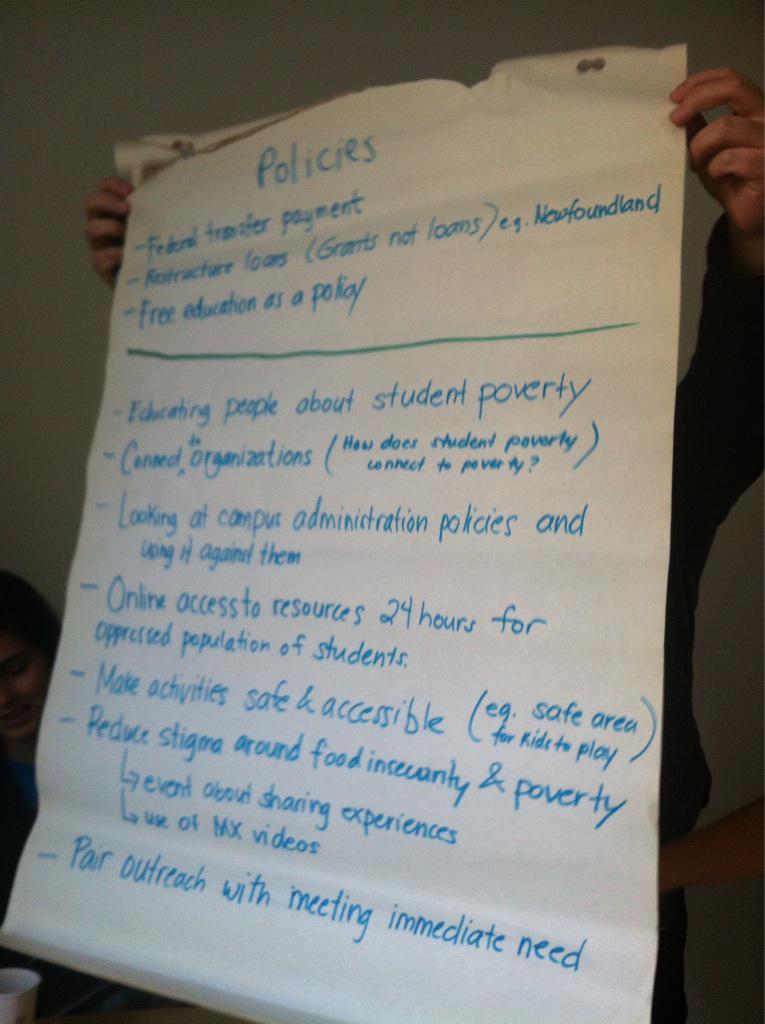 Policies
- Federal transfer payment
- Restructure loans (Grants not loans) eg. Newfoundland
- Free education as a policy
- Educating people about student poverty
- Connect to organizations (How does student poverty connect to poverty?)
- Looking at campus administration policies and
using it against them
- Online access to resources 24 hours for
oppressed population of students.
- Make activities safe & accessible (eg. safe area for kids to play)
- Reduce stigma around food insecurity & poverty
↳ event about sharing experiences
↳ use of MX videos
- Pair outreach with meeting immediate need